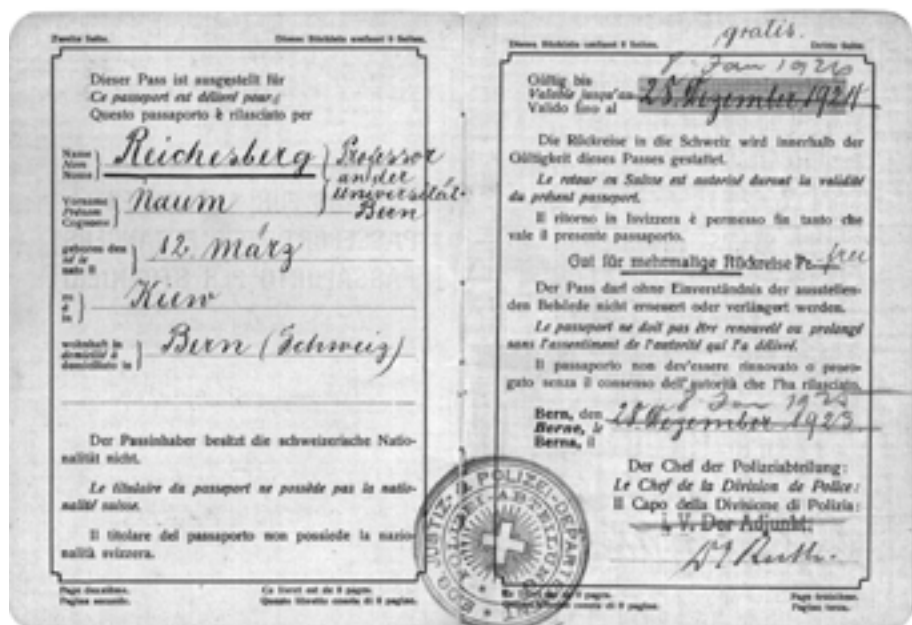 Zweite Seite. Dieses Büchlein umfasst 8 Seiten.
Dieser Pass ist ausgestellt für
Ce passeport est délivré pour:
Questo passaporto è rilasciato per
Name
Nom
Nome
Reichesberg
Professor
an der
Universität
Bern
Vorname
Prénom
Cognome
Naum
geboren den
né le
nato il
12. März
in
à
in
Kiew
wohnhaft in
domicilié à
domiciliato in
Bern (Schweiz)
Der Passinhaber besitzt die schweizerische Natio-
nalität nicht.
Le titulaire du passeport ne possède pas la natio-
nalité suisse.
Il titolare del passaporto non possiede la nazio-
nalità svizzera.
Page deuxième. Ce livret est de 8 pages.
Pagina seconda. Questo libretto consta di 8 pagine.
gratis.
Dieses Büchlein umfasst 8 Seiten. Dritte Seite.
8. Jan 192
Gültig bis
Valable jusqu'au
Valido fino al
28. Dezember 1924
Die Rückreise in die Schweiz wird innerhalb der
Gültigkeit dieses Passes gestattet.
Le retour en Suisse est autorisé durant la validité
du présent passeport.
Il ritorno in Isvizzera è permesso fin tanto che
vale il presente passaporto.
Gut für mehrmalige Rückreise Fr. frei
Der Pass darf ohne Einverständnis der ausstellen-
den Behörde nicht erneuert oder verlängert werden.
Le passeport ne doit pas être renouvelé ou prolongé
sans l'assentiment de l'autorité qui l'a délivré.
Il passaporto non dev'essere rinnovato o proro-
gato senza il consenso dell'autorità che l'ha rilasciato.
8 Jan 192
Bern, den
Berne, le
Berna, il
28. Dezember 1923
Der Chef der Polizeiabteilung:
Le Chef de la Division de Police:
Il Capo della Divisione di Polizia:
i. V. Der Adjunkt:
JUSTIZ- & POLIZEI-DEPARTEMENT
POLIZEI-ABTEILUNG
Page troisième.
Pagina terza.